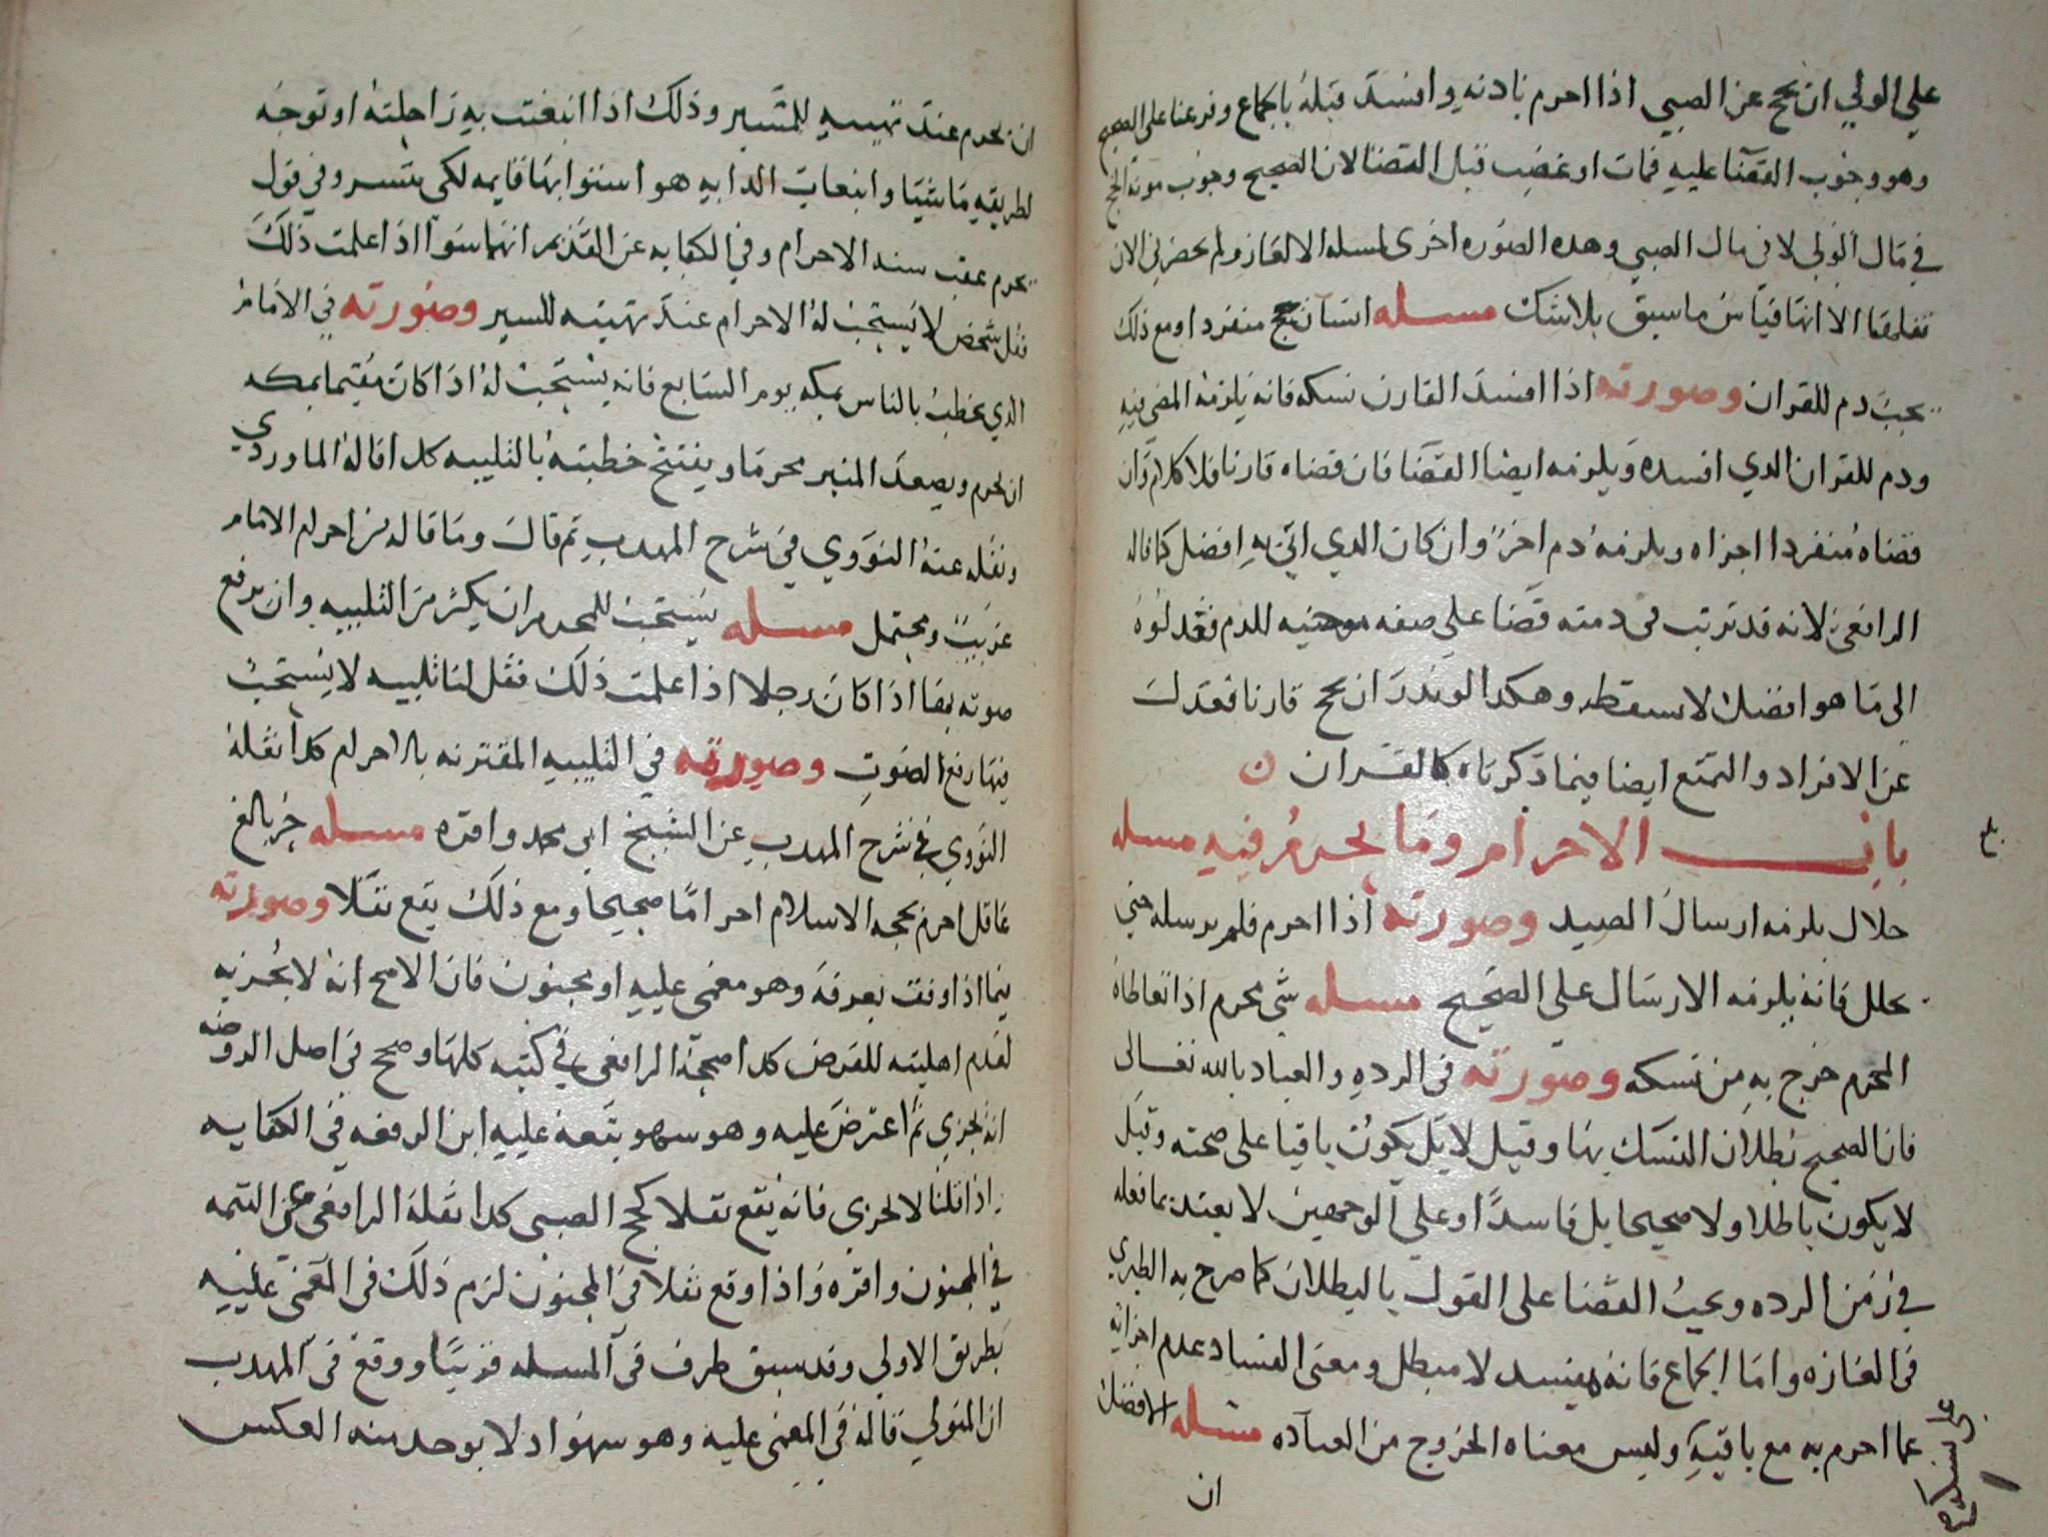 علي الولي ان يحج عن الصبي اذا احرم باذنه وافسد قبله باجماع وفرعنا على الصحيح
وهو وجوب القضا عليه فمات او عضب قبل القضا لان الصحيح وجوب مونه الحج
في مال الولي لا في مال الصبي وهده الصوره اخرى لمسله الالغاز ولم يحضر لي الان
نقلها الا انها قياس ما سبق بلا شك مسله انسان حج منفردا ومع ذلك
يجب دم للقران وصورته اذا افسد القارن نسكه فانه يلزمه المضي فيه
ودم للقران الدي افسده ويلزمه ايضا القضا فان قضاه قارنا فلا كلام وان
قضاه منفردا اجزاه ويلزمه دم اخر وان كان الدي اتي به افضل كما قاله
الرافعي لانه قد ترتب في دمته قضا علي صفه موجبه للدم فعدوله
الى ما هو افضل لا يسقطه وهكدا لو ندر ان يحج قارنا فعدل
عن الافراد والتمتع ايضا فيما دكرناه كالقران ن
باب الاحرام وما يحرم فيه مسله
حلال يلزمه ارسال الصيد وصورته اذا احرم فلم يرسله حتي
تحلل فانه يلزمه الارسال على الصحيح مسله شي محرم اذا تعاطاه
المحرم خرج به من نسكه وصورته في الرده والعياد بالله تعالى
فان الصحيح بطلان النسك بها وقيل لا بل يكون باقيا على صحته وقيل
لا يكون باطلا ولا صحيحا بل فاسدا وعلي الوجهين لا يعتد بما فعله
في زمن الرده ويجب القضا على القول بالبطلان كما صرح به الطبري
في العده واما الجماع فانه مفسد لا مبطل ومعنى الفساد عدم اجزايه
عما احرم به مع باقيه وليس معناه الخروج من العباده مسله الافضل
ان
ان يحرم عند تهييه للسير وذلك اذا انبعثت به راحلته او توجه
لطريقه ماشيا وانبعاث الدابه هو استوابها قايمه لكي تسير وفي قول
يحرم عقب سنه الاحرام وفي الكفايه عن القديم انهما سوا اذا علمت ذلك
فقل شخص لا يستحب له الاحرام عند تهييه للسير وصورته في الامام
الذي يخطب بالناس بمكه يوم السابع فانه يستحب له اذا كان مقيما بمكه
ان يحرم ويصعد المنبر محرما ويفتتح خطبته بالتلبيه كدا قاله الماوردي
ونقله عنه النووي في شرح المهدب ثم قال وما قاله من احرام الامام
غريب ومحتمل مسله يستحب للمحرم ان يكثر من التلبيه وان يرفع
صوته بها اذا كان رجلا اذا علمت ذلك فقل لنا تلبيه لا يستحب
فيها رفع الصوت وصورته في التلبيه المقترنه بالاحرام كدا نقله
النووي في شرح المهدب عن الشيخ ابي محمد واقره مسله حر بالغ
عاقل احرم بحجه الاسلام احراما صحيحا ومع ذلك يقع نفلا وصورته
فيما اذا وقف بعرفه وهو مغمى عليه او مجنون فان الاصح انه لا يجزيه
لعدم اهليته للفرض كدا صححه الرافعي في كتبه كلها وصحح في اصل الروضه
انه يجزي ثم اعترض عليه وهو سهو تبعه عليه ابن الرفعه في الكفايه
اذا قلنا لا يجزي فانه يقع نفلا كحج الصبي كدا نقله الرافعي عن التتمه
في المجنون واقره واذا وقع نفلا في المجنون لزم ذلك في المغمي عليه
بطريق الاولي وقد سبق طرف في المسله قريبا ووقع في المهدب
ان المتولي قاله في المغمى عليه وهو سهو اد لا يوخد منه العكس